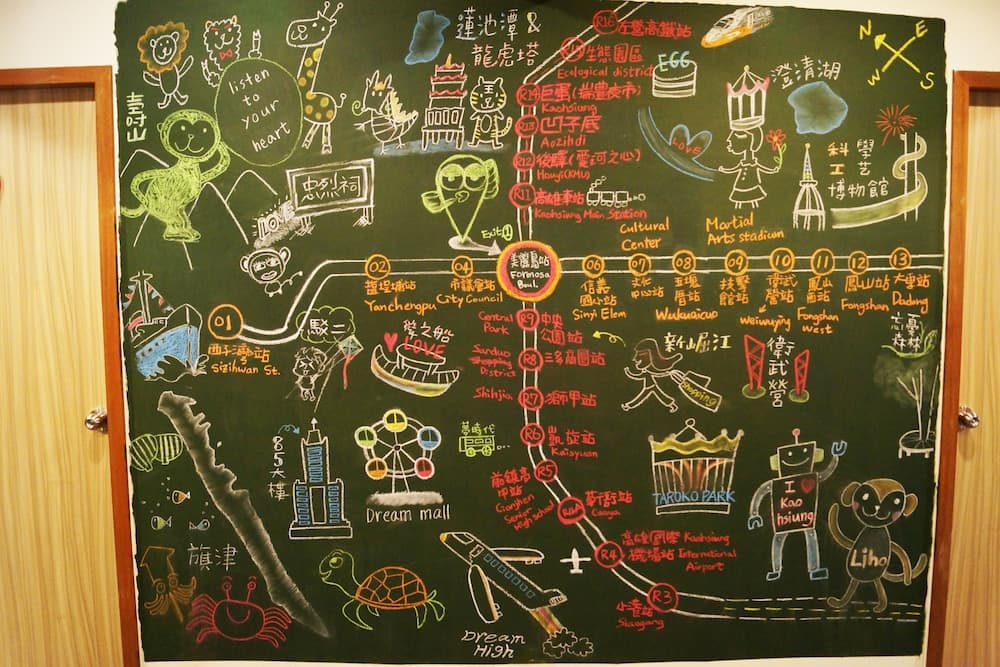 蓮池潭 &
龍虎塔
listen
to
your
heart
壽山
忠烈祠
LOVE
R16 左營高鐵站
R15 生態園區
Ecological district
R14 巨蛋(瑞豐夜市)
Kaohsiung
R13 凹子底
Aozihdi
R12 後驛(愛河之心)
Houyi(KMU)
R11 高雄車站
Kaohsiung Main Station
EGG
LOVE
澄清湖
科工
學艺
博物館
N
E
W
S
Exit 1
美麗島站
Formosa
Boul.
01
西子灣站
Sizihwan St.
02
鹽埕埔站
Yanchengpu
04
市議會站
City Council
06
信義
國小站
Sinyi Elem
Cultural
Center
07
文化
中心站
08
五塊
厝站
Wukuaicuo
Martial
Arts stadium
09
技擊
館站
10
衛武
營站
Weiwuying
11
鳳山
西站
Fongshan
West
12
鳳山站
Fongshan
13
大東站
Dadong
駁二
愛之船
LOVE
Central
Park
R9 中央
公園站
Sanduo
Shopping
District
R8 三多商圈站
Shihjia
R7 獅甲站
R6 凱旋站
Kaisyuan
R5
前鎮高
中站
Cianjhen
Senior
High school
R4A 草衙站
Caoya
R4 高雄國際
機場站
Kaohsiung
International
Airport
R3
小港站
Siaogang
新崛江
Shopping
衛武營
森林
85大樓
夢時代
Dream mall
TAROKO PARK
I
Kao
hsiung
Liho
旗津
Dream
High